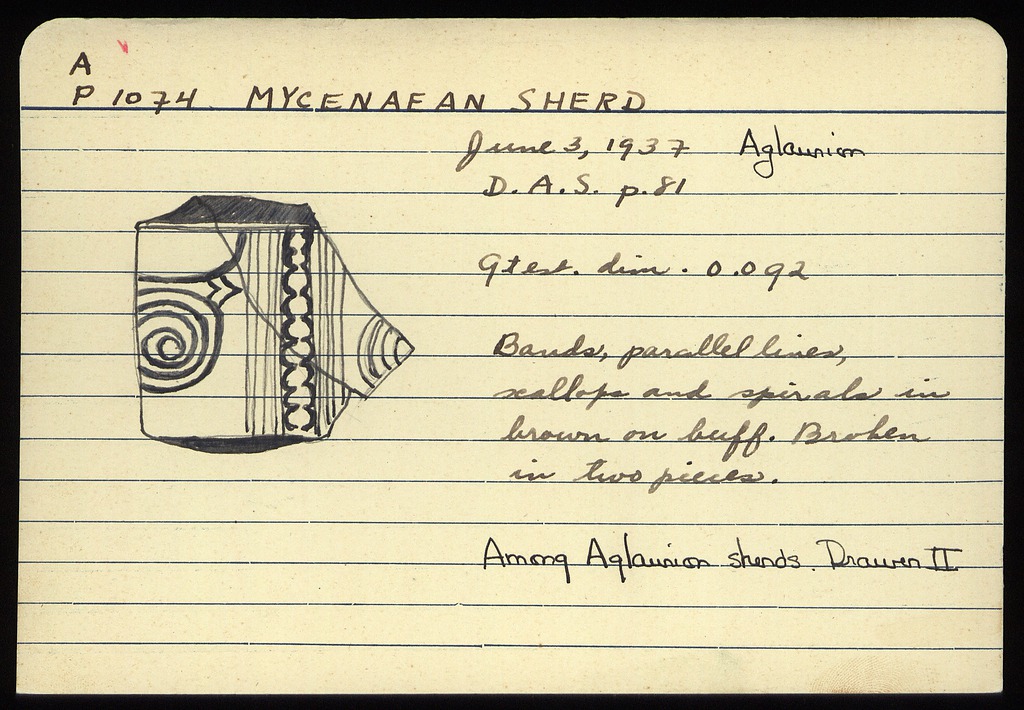 A
P 1074. MYCENAEAN SHERD
June 3, 1937 Aglaurion
D.A.S. p.81
Gtest. dim. 0.092
Bands, parallel lines,
scallops and spirals in
brown on buff. Broken
in two pieces.
Among Aglaurion sherds. Drawer II